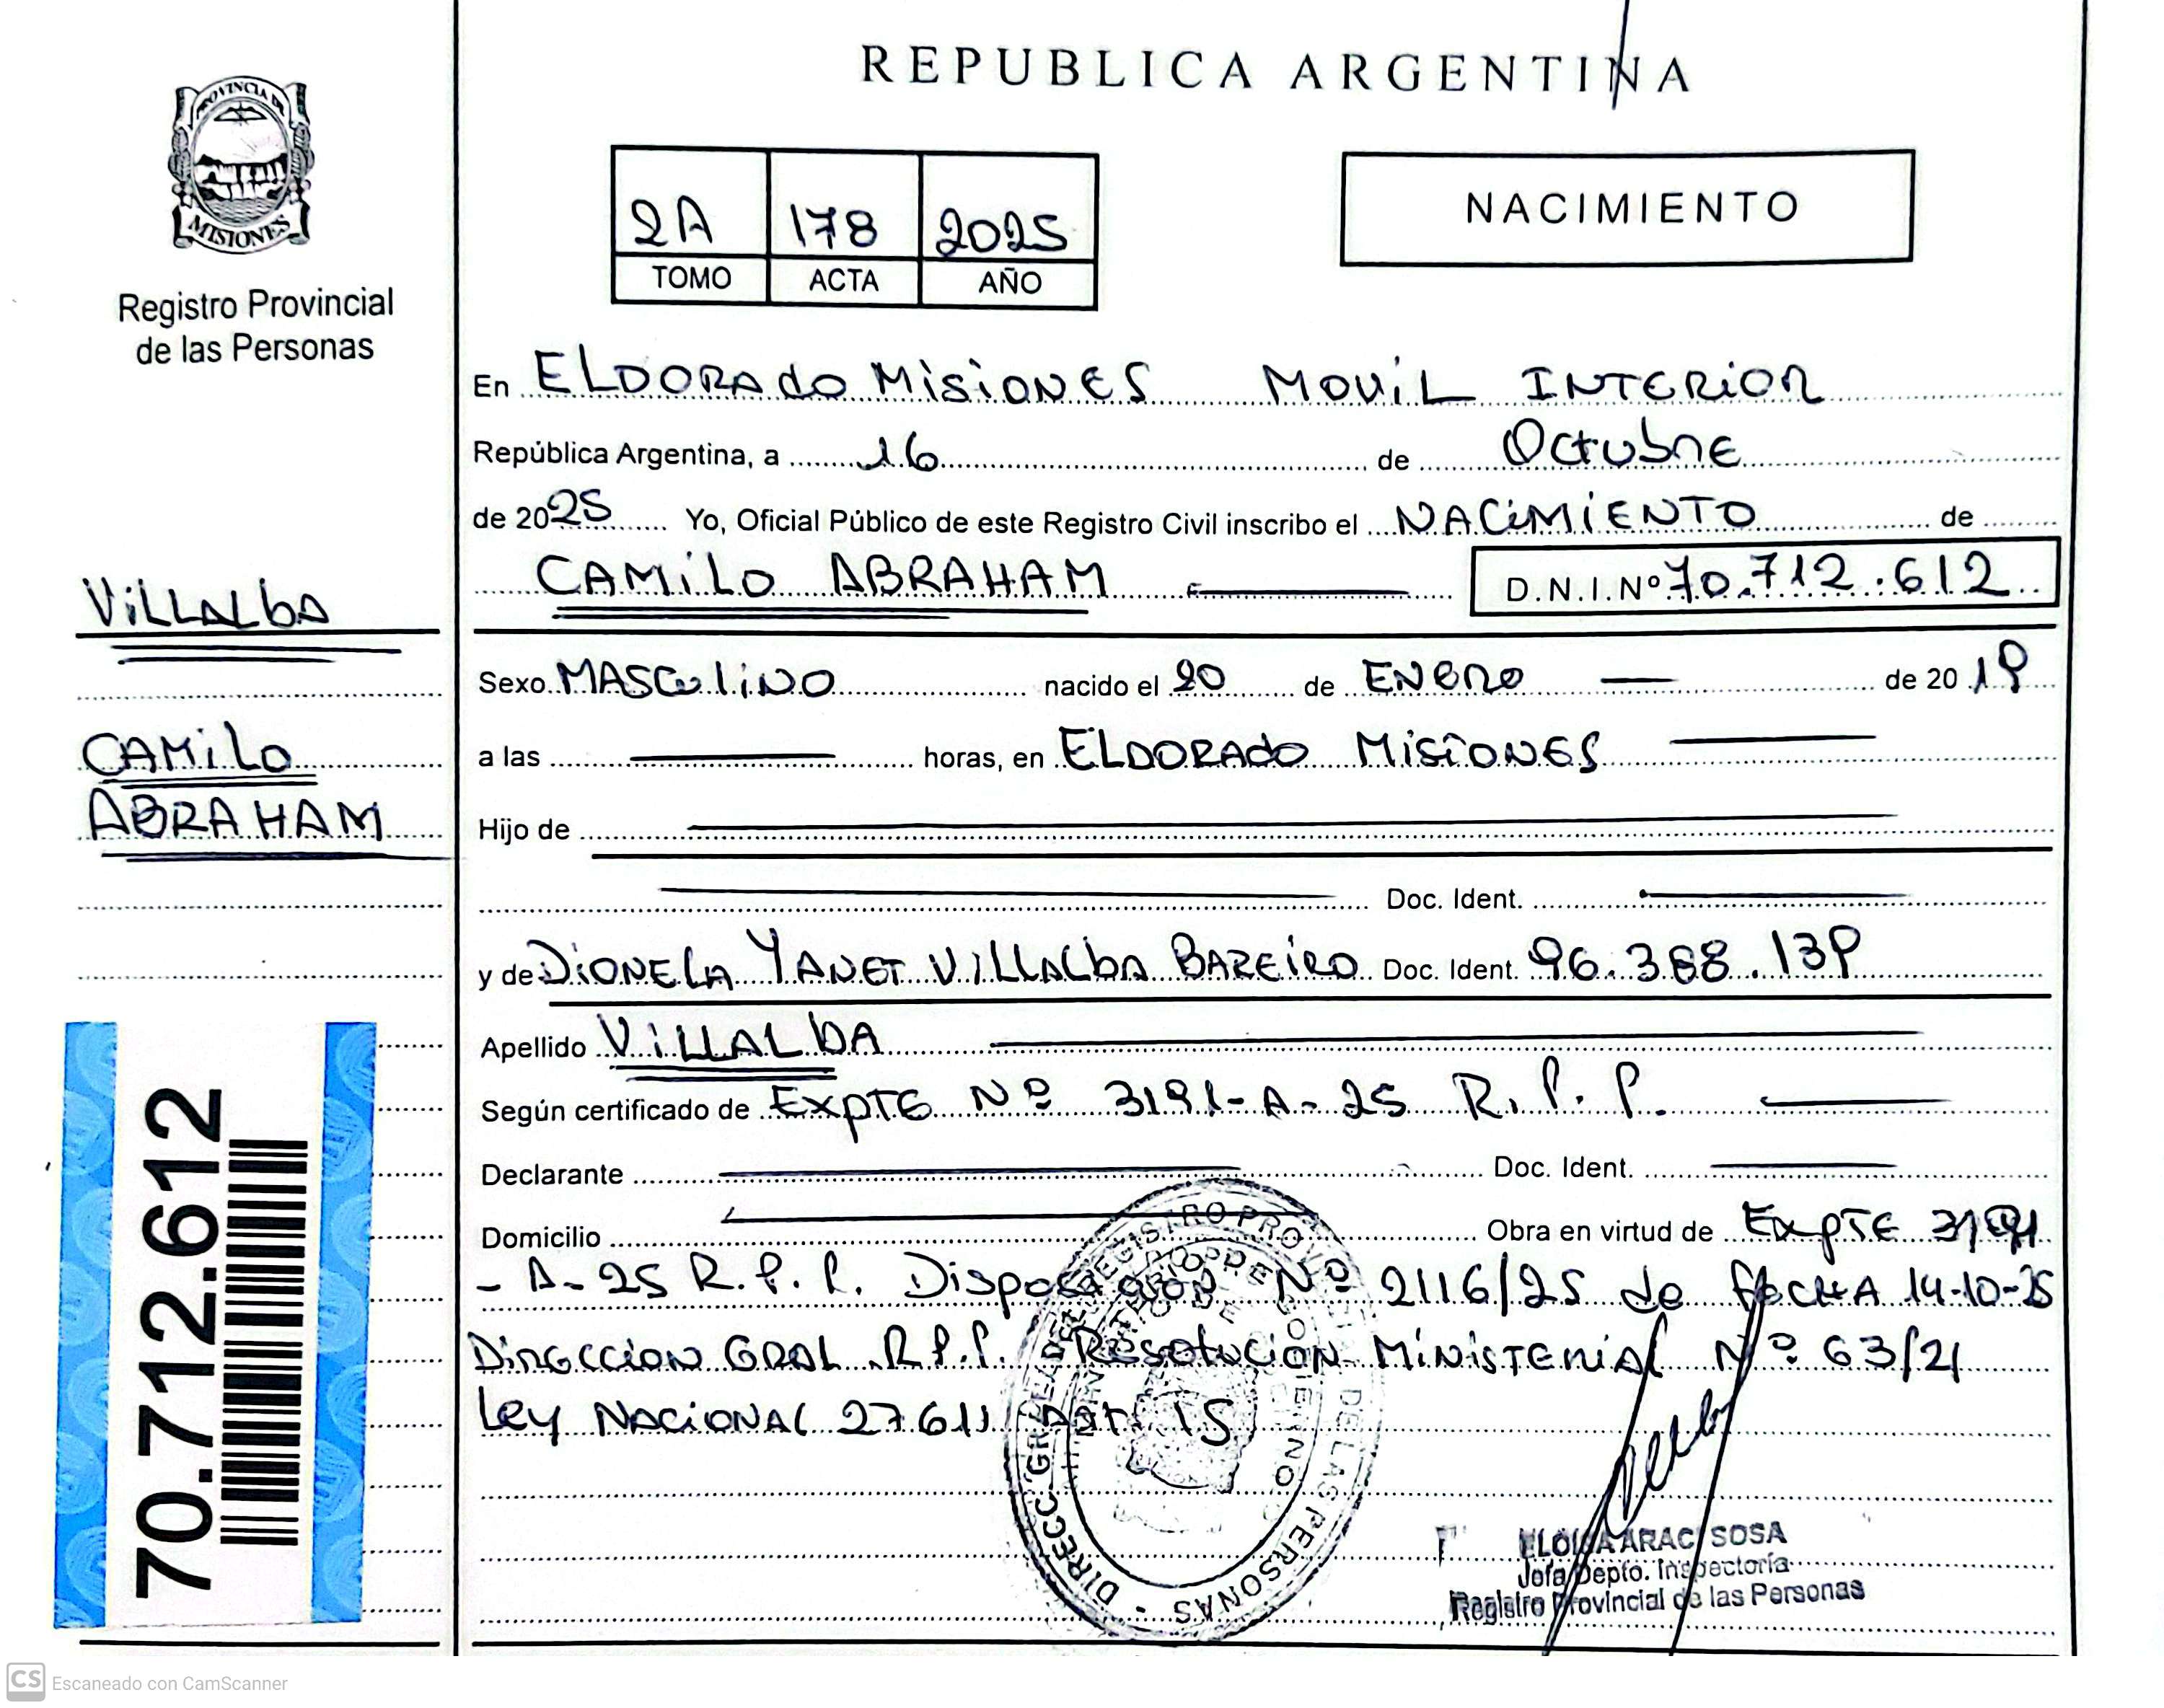 REPUBLICA ARGENTINA
PROVINCIA DE
MISIONES
Registro Provincial
de las Personas
2A 178 2025
TOMO ACTA AÑO
NACIMIENTO
En ELDORADO MISIONES MOVIL INTERIOR
República Argentina, a 16 de Octubre
de 2025 Yo, Oficial Público de este Registro Civil inscribo el NACIMIENTO de
CAMILO ABRAHAM D.N.I.Nº 70.712.612
VILLALBA
CAMILO
ABRAHAM
Sexo MASCULINO nacido el 20 de ENERO de 2019
a las horas, en ELDORADO MISIONES
Hijo de
Doc. Ident.
y de DIONELA YANET VILLALBA BAREIRO Doc. Ident. 96.388.139
Apellido VILLALBA
Según certificado de EXPTE Nº 3191-A-25 R.P.P.
Declarante Doc. Ident.
Domicilio Obra en virtud de EXPTE 3191
-A-25 R.P.P. Disposicion Nº 2116/25 de fecha 14-10-25
Direccion GRAL R.P.P. Resolucion Ministerial Nº 63/21
Ley Nacional 27.611 Art. 15
70.712.612
DIRECC. GRAL. DE REGISTRO PROVINCIAL DE LAS PERSONAS
ELOISA ARACI SOSA
Jefa Depto. Inspectoría
Registro Provincial de las Personas
CS Escaneado con CamScanner